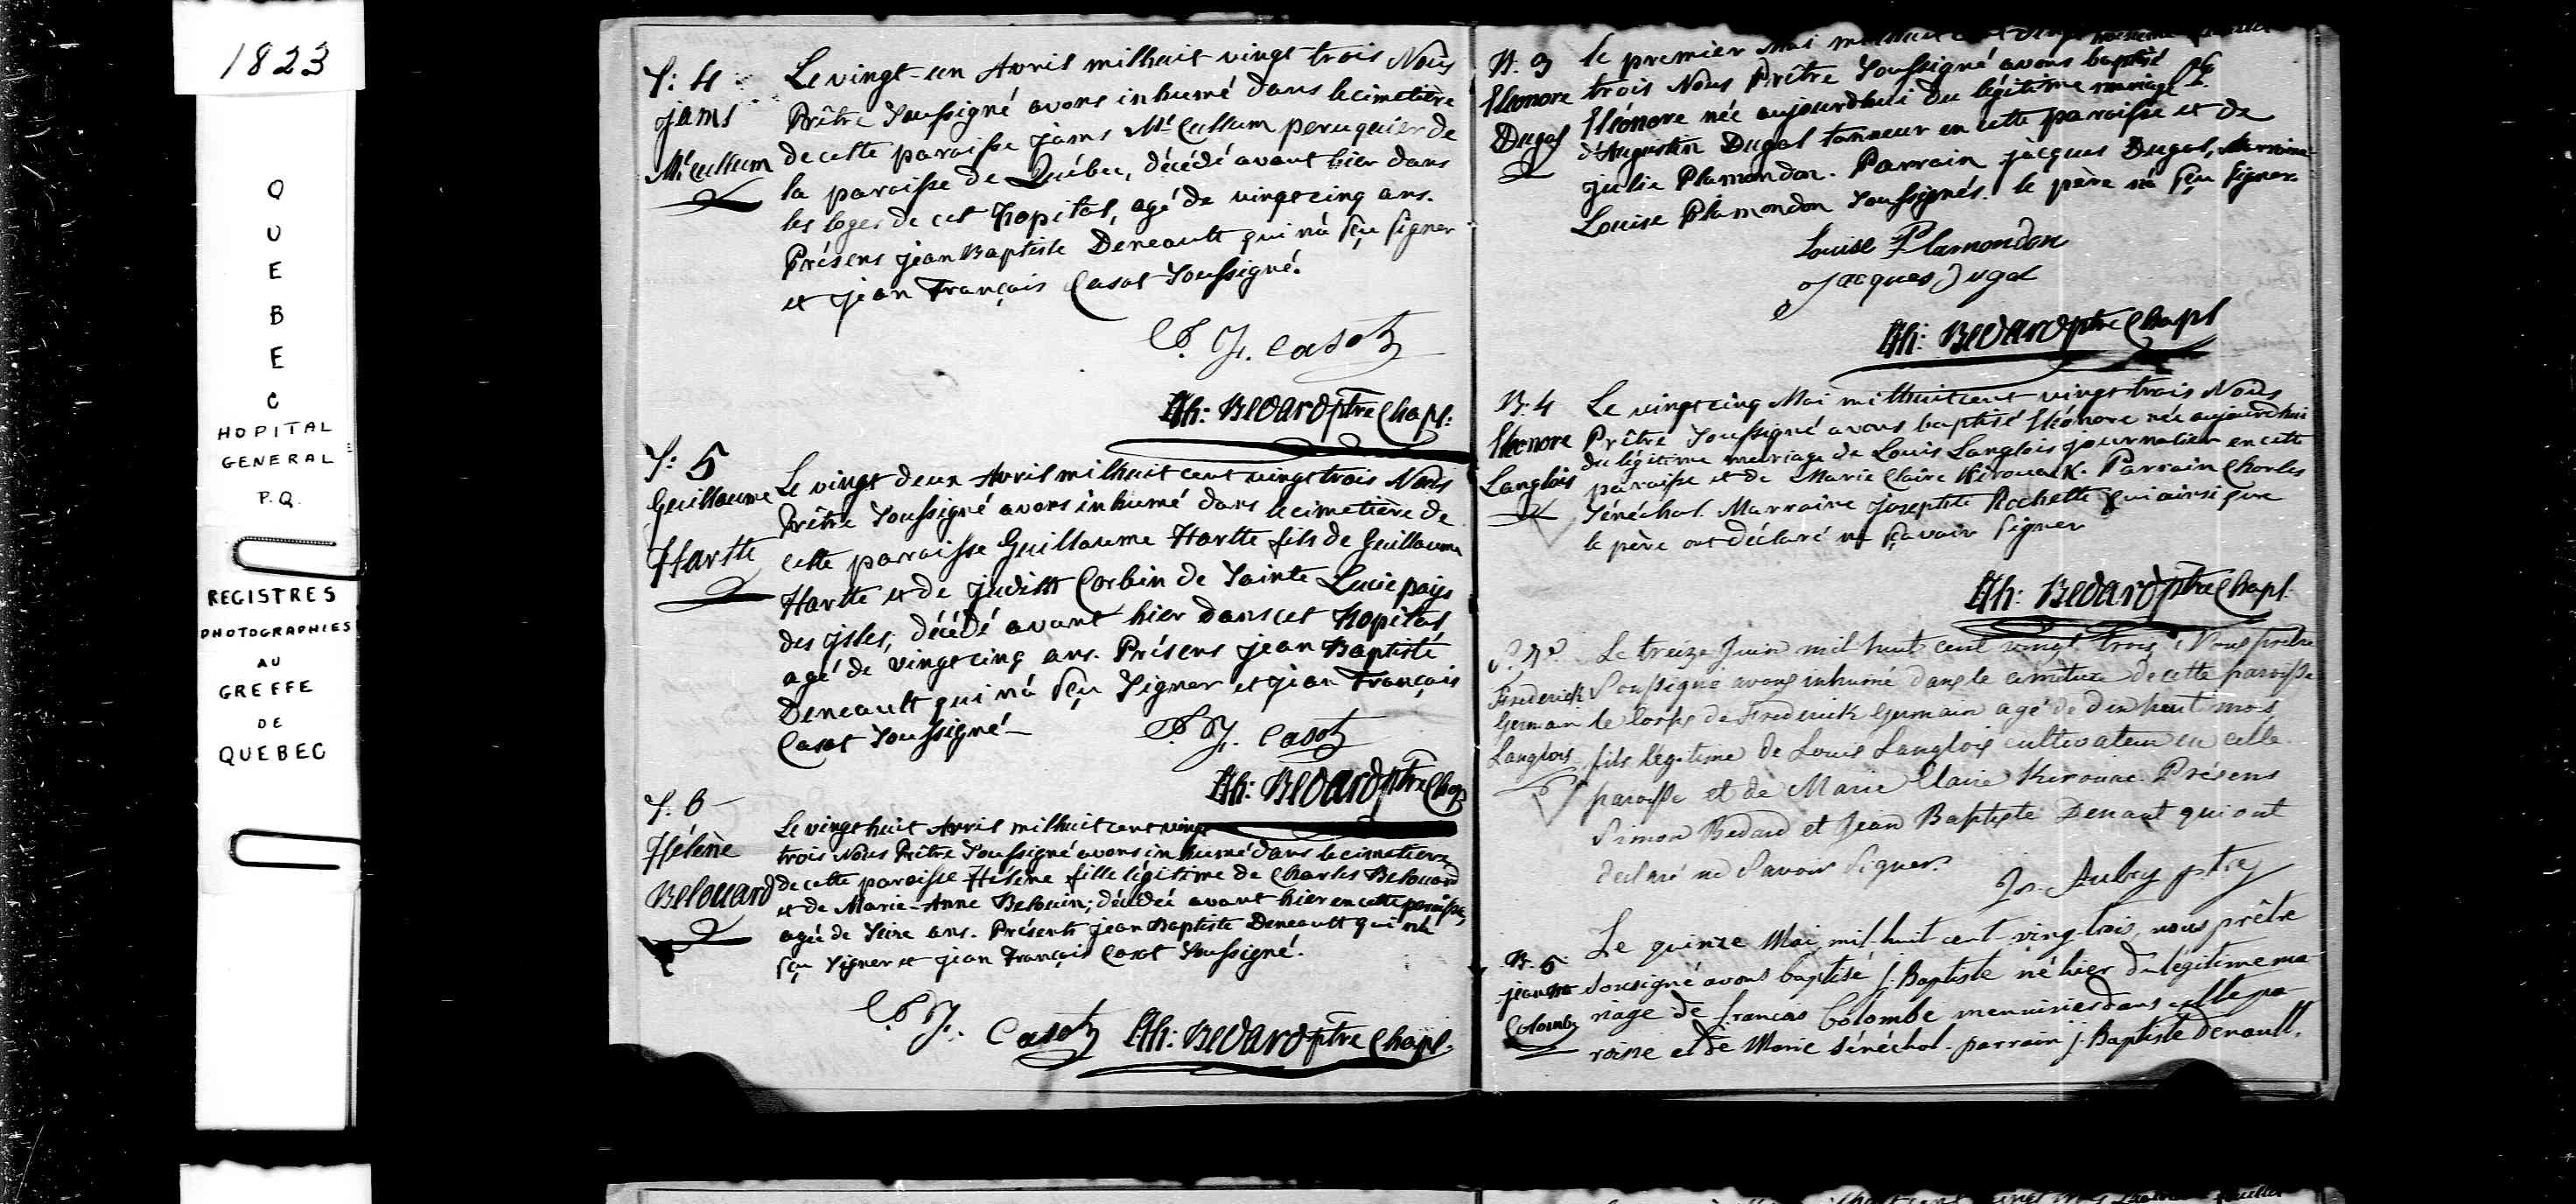 1823
QUEBEC
HOPITAL
GENERAL
P.Q.
REGISTRES
PHOTOGRAPHIES
AU
GREFFE
DE
QUEBEC
S: 4
jams
Mc Cullum
Le vingt-un Avril milhuit vingt trois Nous
Prêtre Soussigné avons inhumé dans le cimetière
de cette paroisse jams Mc Cullum peruquier de
la paroisse de Québec, décédé avant hier dans
les loges de cet hopital, agé de vingt cinq ans.
Présens jean Baptiste Deneault qui n'a sçu signer
et jean François Casot Soussigné.
J. F. Casot
Ch: Bedard ptre Chapl:
S: 5
Guillaume
Hartte
Le vingt deux Avril milhuit cent vingt trois Nous
Prêtre Soussigné avons inhumé dans le cimetière de
cette paroisse Guillaume Hartte fils de Guillaume
Hartte et de Judith Corbin de Sainte Lucie pays
des isles, décédé avant hier dans cet hopital
agé de vingt cinq ans. Présens jean Baptiste
Deneault qui n'a sçu Signer et jean François
Casot Soussigné
J. F. Casot
Ch: Bedard ptre Chap
S: 6
Hélène
Belouard
Le vingt huit Avril milhuit cent vingt
trois Nous Prêtre Soussigné avons inhumé dans le cimetière
de cette paroisse Hélène fille légitime de Charles Belouard
et de Marie-Anne Belouin; décédée avant hier en cette paroisse,
agée de Seize ans. Présents jean Baptiste Deneault qui n'a
sçu Signer et jean François Casot Soussigné.
J. F. Casot Ch: Bedard ptre Chapl.
B. 3
Eléonore
Dugal
le premier Mai milhuit cent vingt
trois Nous Prêtre Soussigné avons baptisé
Eléonore née aujourdhui du légitime mariage
d'Augustin Dugal tanneur en cette paroisse et de
julie Plamondon. Parrain jacques Dugal, Marraine
Louise Plamondon Soussignés. le père n'a sçu signer
Louise Plamondon
Jacques Dugal
Ch: Bedard ptre Chapl
B. 4
Eléonore
Langlois
Le vingt cinq Mai milhuit cent vingt trois Nous
Prêtre Soussigné avons baptisé Eléonore née aujourdhui
du légitime mariage de Louis Langlois journalier en cette
paroisse et de Marie Claire Kirouack. Parrain Charles
Sénéchal. Marraine Josephte Rochette qui ainsi que
le père ont déclaré ne sçavoir signer
Ch: Bedard ptre Chapl.
S. 7e
Frederick
Germain
Langlois
Le treize Juin mil huit cent vingt trois, Nous prêtre
Soussigné avons inhumé dans le cimetière de cette paroisse
le corps de Frederick Germain agé de dix huit mois
fils légitime de Louis Langlois cultivateur en cette
paroisse et de Marie Claire Kerouac. Présens
Simon Bedard et Jean Baptiste Denaut qui ont
declaré ne Savoir Signer.
Jos. Aubry ptre
B. 5
jean Bte
Colombe
Le quinze Mai mil-huit cent-ving-trois, nous prêtre
Sousigné avons baptisé J. Baptiste né hier du légitime ma-
riage de francois Colombe menuisier dans cette pa-
roisse et de Marie Sénéchal. parrain j. Baptiste Denault.